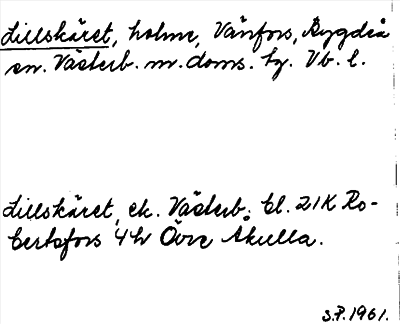 Lillskäret, holme, Vänfors, Bygdeå
sn. Västerb. m. doms. tg. Vb. l.
Lillskäret, ek. Västerb. bl. 21K Ro-
bertsfors 4h Övre Åkulla.
S.P. 1961.